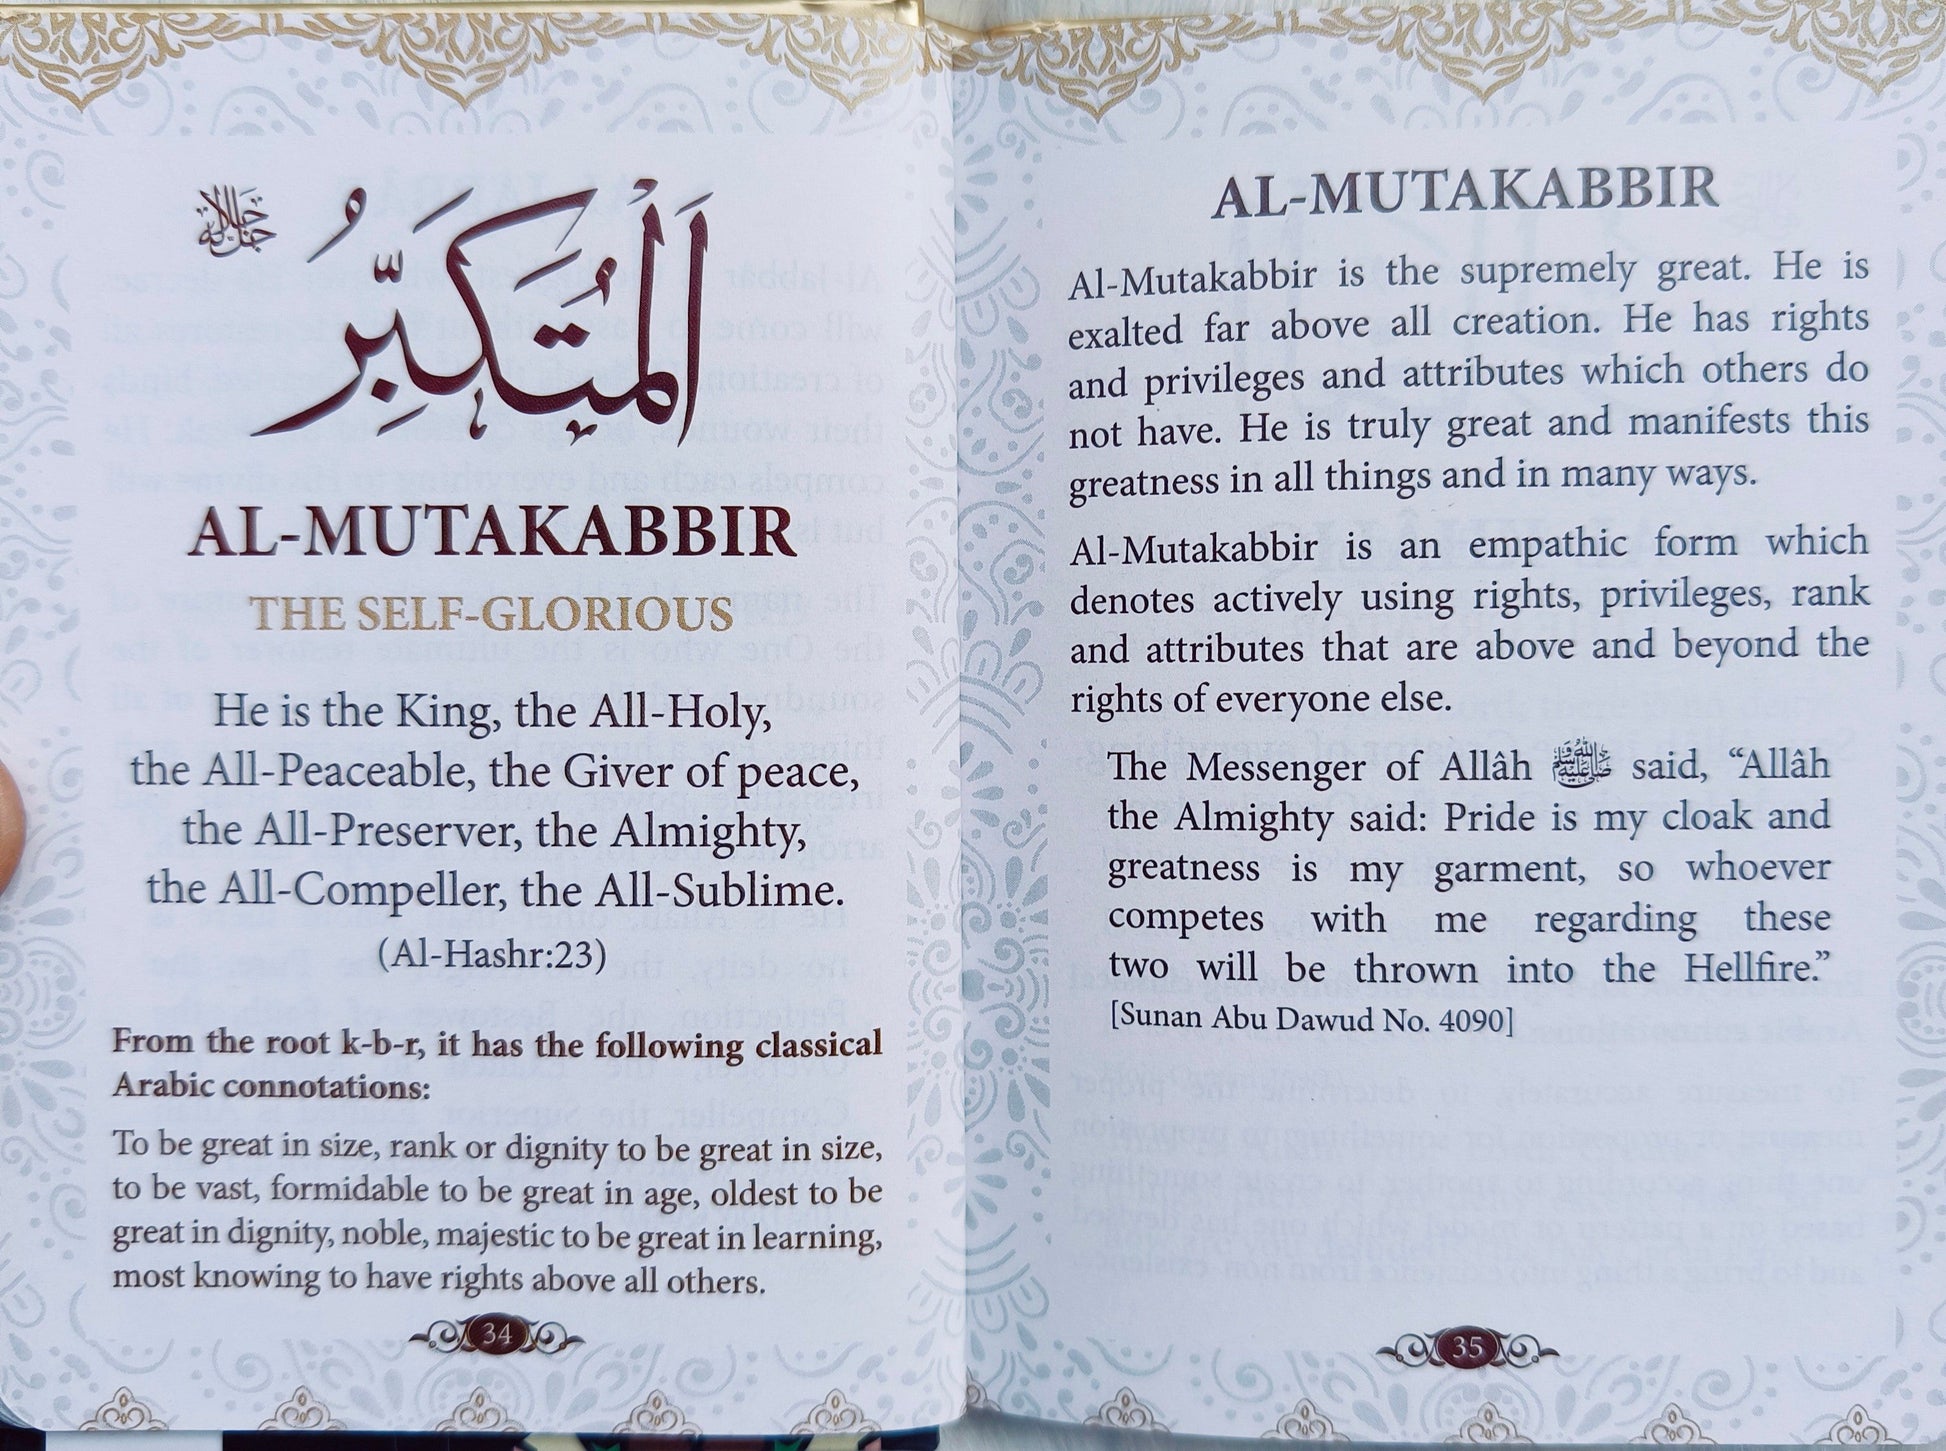 جل جلاله
الْمُتَكَبِّرُ
AL-MUTAKABBIR
THE SELF-GLORIOUS
He is the King, the All-Holy,
the All-Peaceable, the Giver of peace,
the All-Preserver, the Almighty,
the All-Compeller, the All-Sublime.
(Al-Hashr:23)
From the root k-b-r, it has the following classical
Arabic connotations:
To be great in size, rank or dignity to be great in size,
to be vast, formidable to be great in age, oldest to be
great in dignity, noble, majestic to be great in learning,
most knowing to have rights above all others.
34
AL-MUTAKABBIR
Al-Mutakabbir is the supremely great. He is
exalted far above all creation. He has rights
and privileges and attributes which others do
not have. He is truly great and manifests this
greatness in all things and in many ways.
Al-Mutakabbir is an empathic form which
denotes actively using rights, privileges, rank
and attributes that are above and beyond the
rights of everyone else.
The Messenger of Allâh ﷺ said, “Allâh
the Almighty said: Pride is my cloak and
greatness is my garment, so whoever
competes with me regarding these
two will be thrown into the Hellfire.”
[Sunan Abu Dawud No. 4090]
35